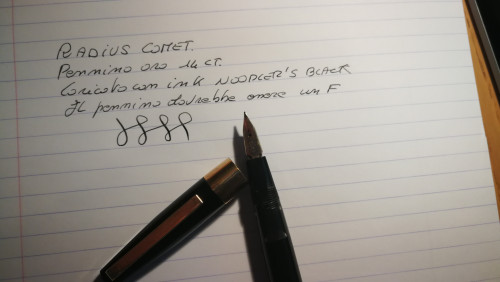 RADIUS COMET.
Pennino oro 14 CT.
Caricato con ink NOODLER'S BLACK
Il pennino dovrebbe essere un F